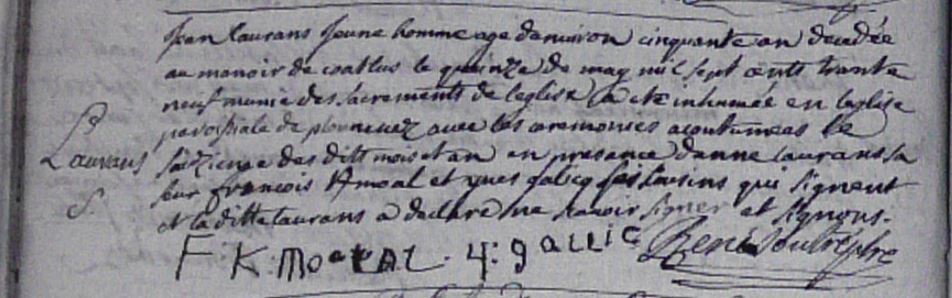 Jean Laurans Jeune homme age denuiron cinquante an decedée
au manoir de coatlus le quinze de may mil sept cents trante
neuf munie des sacrements de leglise a eté inhumée en leglise
paroissiale de plouneuez auec les ceremonies acoutumeés le
saizieme des ditt mois et an en presance danne laurans sa
Laurans
seur francois Kmoal et yues galicq ses Cousins qui signent
et la ditte laurans a declaré ne scauoir signer et signons.
F: K: MoaL 4: gallic René